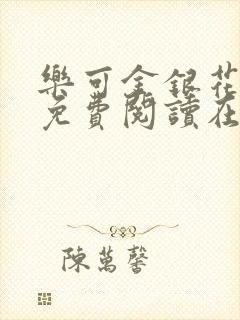 樂可金銀花
免費閱讀在
陳萬馨